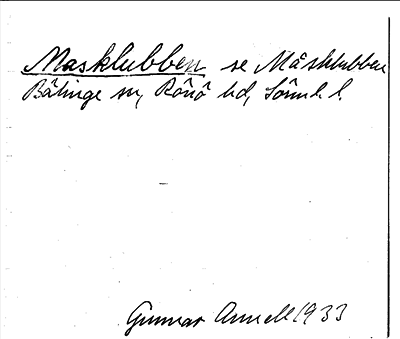 Masklubben se Måsklubben
Bälinge sn, Rönö hd, Sörml. l.
Gunnar Annell 1933